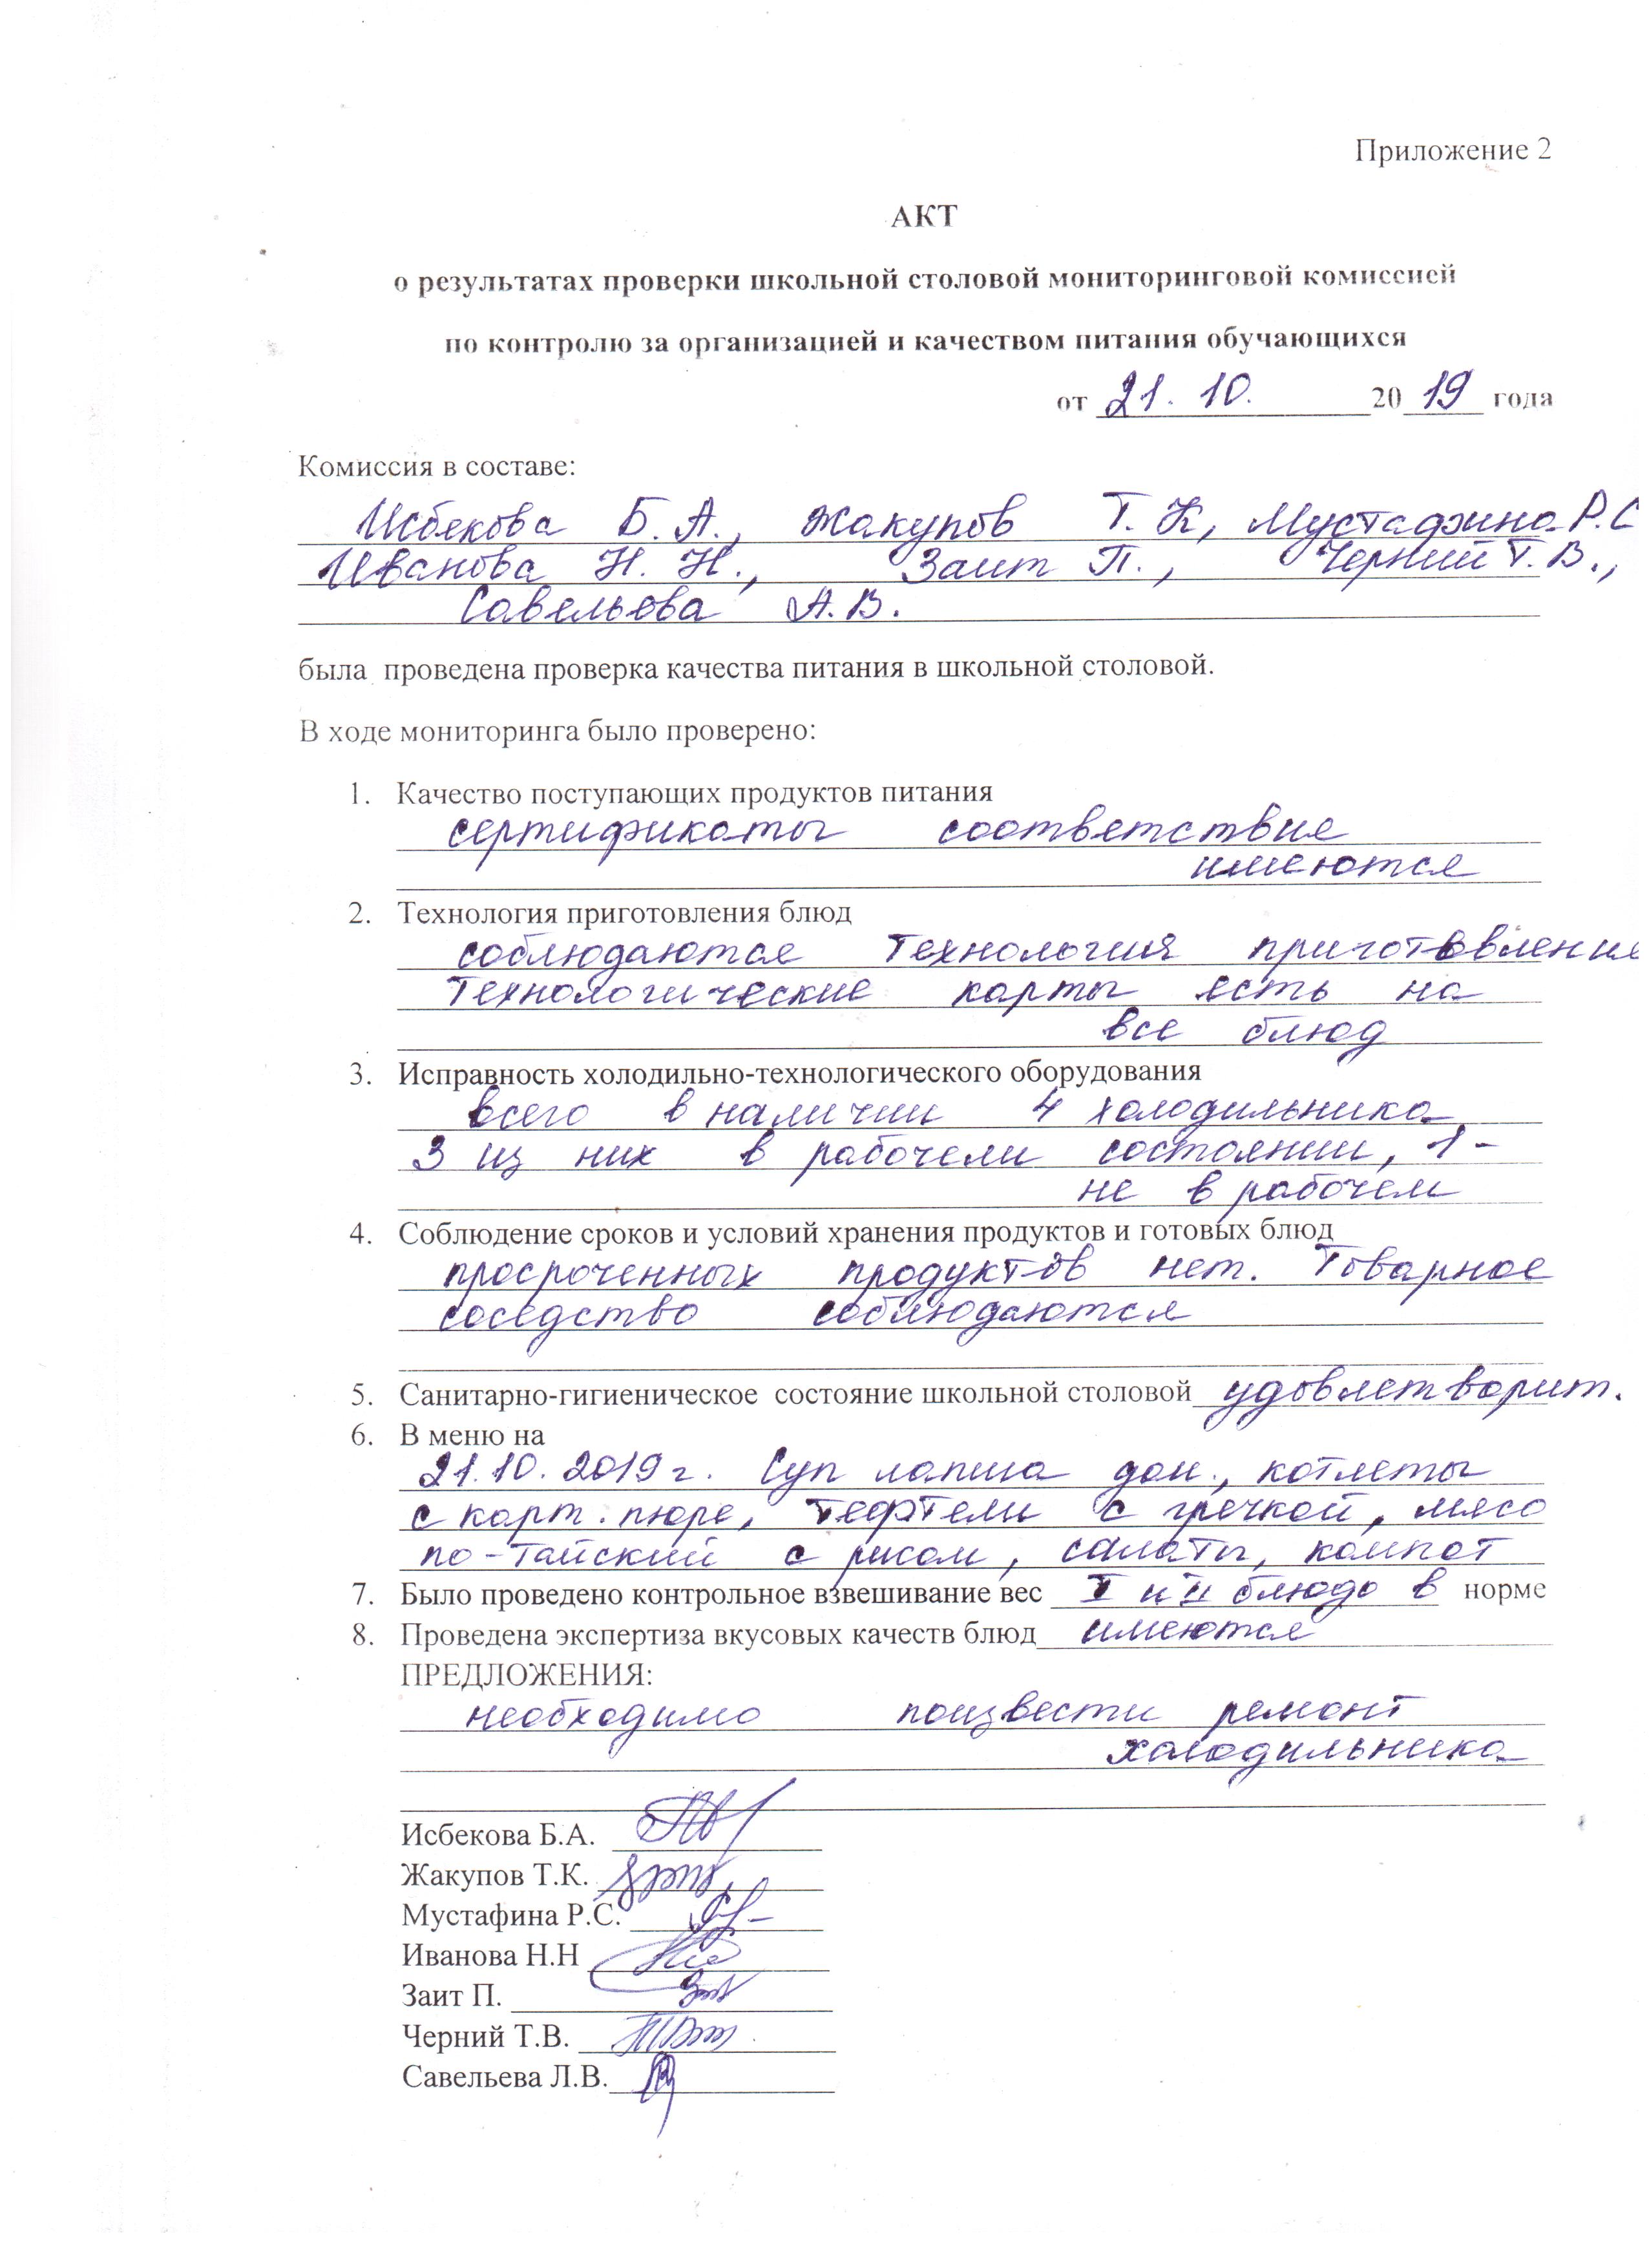 Приложение 2
АКТ
о результатах проверки школьной столовой мониторинговой комиссией
по контролю за организацией и качеством питания обучающихся
от 21. 10. 2019 года
Комиссия в составе:
Исбекова Б. А., Жакупов Т. К, Мустафина Р.С
Иванова Н. Н., Заит П., Черний Т. В.,
Савельева А. В.
была проведена проверка качества питания в школьной столовой.
В ходе мониторинга было проверено:
1. Качество поступающих продуктов питания
сертификаты соответствие
имеются
2. Технология приготовления блюд
соблюдаются технология приготовление
Технологические карты есть на
все блюд
3. Исправность холодильно-технологического оборудования
всего в наличии 4 холодильника
3 из них в рабочем состоянии, 1 -
не в рабочем
4. Соблюдение сроков и условий хранения продуктов и готовых блюд
просроченных продуктов нет. Товарное
соседство соблюдаются
5. Санитарно-гигиеническое состояние школьной столовой удовлетворит.
6. В меню на
21.10.2019 г. Суп лапша дом., котлеты
с карт. пюре, тефтели с гречкой, мясо
по-тайский с рисом, салаты, компот
7. Было проведено контрольное взвешивание вес I и II блюдо в норме
8. Проведена экспертиза вкусовых качеств блюд имеются
ПРЕДЛОЖЕНИЯ:
необходимо поизвести ремонт
холодильника
Исбекова Б.А.
Жакупов Т.К.
Мустафина Р.С.
Иванова Н.Н
Заит П.
Черний Т.В.
Савельева Л.В.